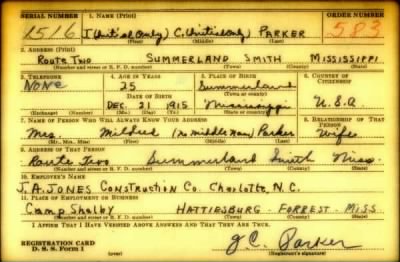 SERIAL NUMBER 1. NAME (Print) ORDER NUMBER
1516 J(Initial Only) C.(Initial only) PARKER 583
(First) (Middle) (Last)
2. ADDRESS (Print)
ROUTE TWO SUMMERLAND SMITH MISSISSIPPI
(Number and street or R. F. D. number) (Town) (County) (State)
3. TELEPHONE 4. AGE IN YEARS 5. PLACE OF BIRTH 6. COUNTRY OF CITIZENSHIP
NONE 25 Summerland
DATE OF BIRTH (Town or county)
DEC. 21 1915 Mississippi U.S.A.
(Exchange) (Number) (Mo.) (Day) (Yr.) (State or country)
7. NAME OF PERSON WHO WILL ALWAYS KNOW YOUR ADDRESS 8. RELATIONSHIP OF THAT PERSON
Mrs. Mildred (no middle name) Parker Wife
(Mr., Mrs., Miss) (First) (Middle) (Last)
9. ADDRESS OF THAT PERSON
Route two Summerland Smith Miss.
(Number and street or R. F. D. number) (Town) (County) (State)
10. EMPLOYER'S NAME
J.A. JONES CONSTRUCTION CO. Charlotte, N.C.
11. PLACE OF EMPLOYMENT OR BUSINESS
Camp Shelby HATTIESBURG - FORREST - MISS
(Number and street or R. F. D. number) (Town) (County) (State)
I AFFIRM THAT I HAVE VERIFIED ABOVE ANSWERS AND THAT THEY ARE TRUE.
REGISTRATION CARD
D. S. S. Form 1
J C. Parker
(Registrant's signature)